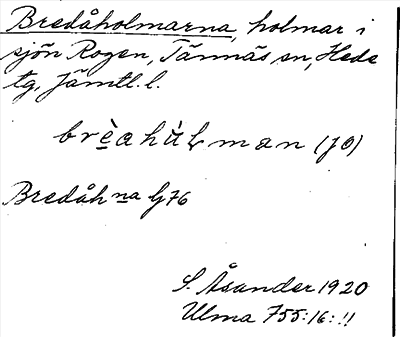 Bredåholmarna, holmar i
sjön Rogen, Tännäs sn, Hede
tg, Jämtl. l.
brèahùɫman (JÖ)
Bredåhna G76
S. Åsander 1920
Ulma 755:16:!!